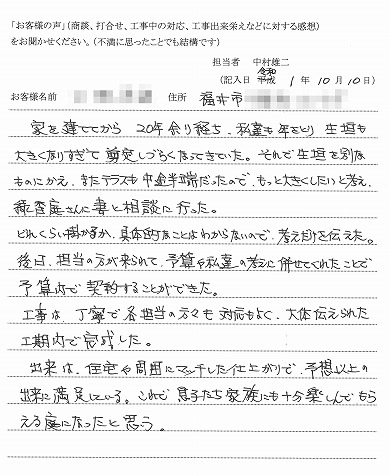 「お客様の声」(商談、打合せ、工事中の対応、工事出来栄えなどに対する感想)
をお聞かせください。(不満に思ったことでも結構です)
担当者 中村雄二
令和
(記入日 平成 1年 10月 10日)
お客様名前 住所 福井市
家を建ててから 20年余り経ち、私達も年をとり生垣も
大きくなりすぎて剪定しづらくなってきていた。それで生垣を別な
ものにかえ、またテラスも中途半端だったので、もっと大きくしたいと考え、
さんに妻と相談に行った。
どれくらい掛かるか、具体的なことはわからないので、考えだけを伝えた。
後日、担当の方が来られて、予算や私達の考えに併せてくれたことで
予算内で契約することができた。
工事は、丁寧で各担当の方々も対応もよく、大体伝えられた
工期内で完成した。
出来は、住宅や周囲にマッチした仕上がりで、予想以上の
出来に満足している。これで息子たち家族にも十分楽しんでもら
える庭になったと思う。